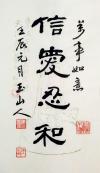 萬事如意
信愛忍和
壬辰元月玉山人